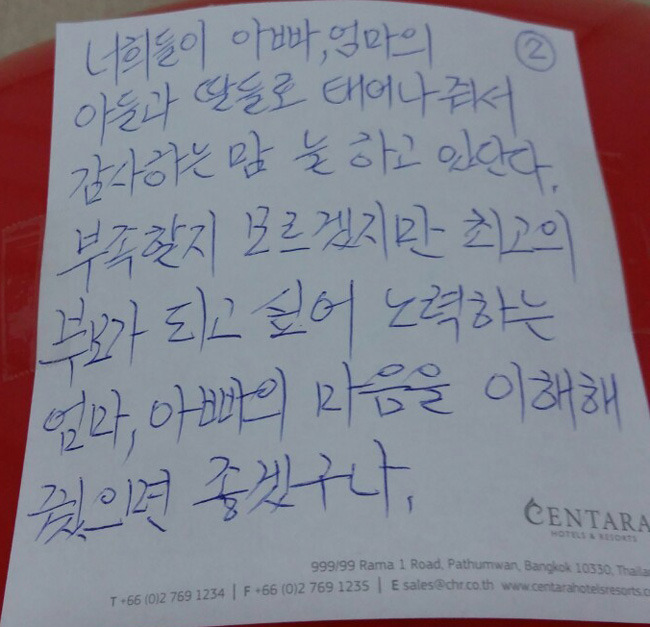 너희들이 아빠, 엄마의 ②
아들과 딸들로 태어나줘서
감사하는 맘 늘 하고 있단다.
부족할지 모르겠지만 최고의
부모가 되고 싶어 노력하는
엄마, 아빠의 마음을 이해해
줬으면 좋겠구나.
CENTARA
HOTELS & RESORTS
999/99 Rama 1 Road, Pathumwan, Bangkok 10330, Thaila
T +66 (0)2 769 1234 | F +66 (0)2 769 1235 | E sales@chr.co.th www.centarahotelsresorts.c